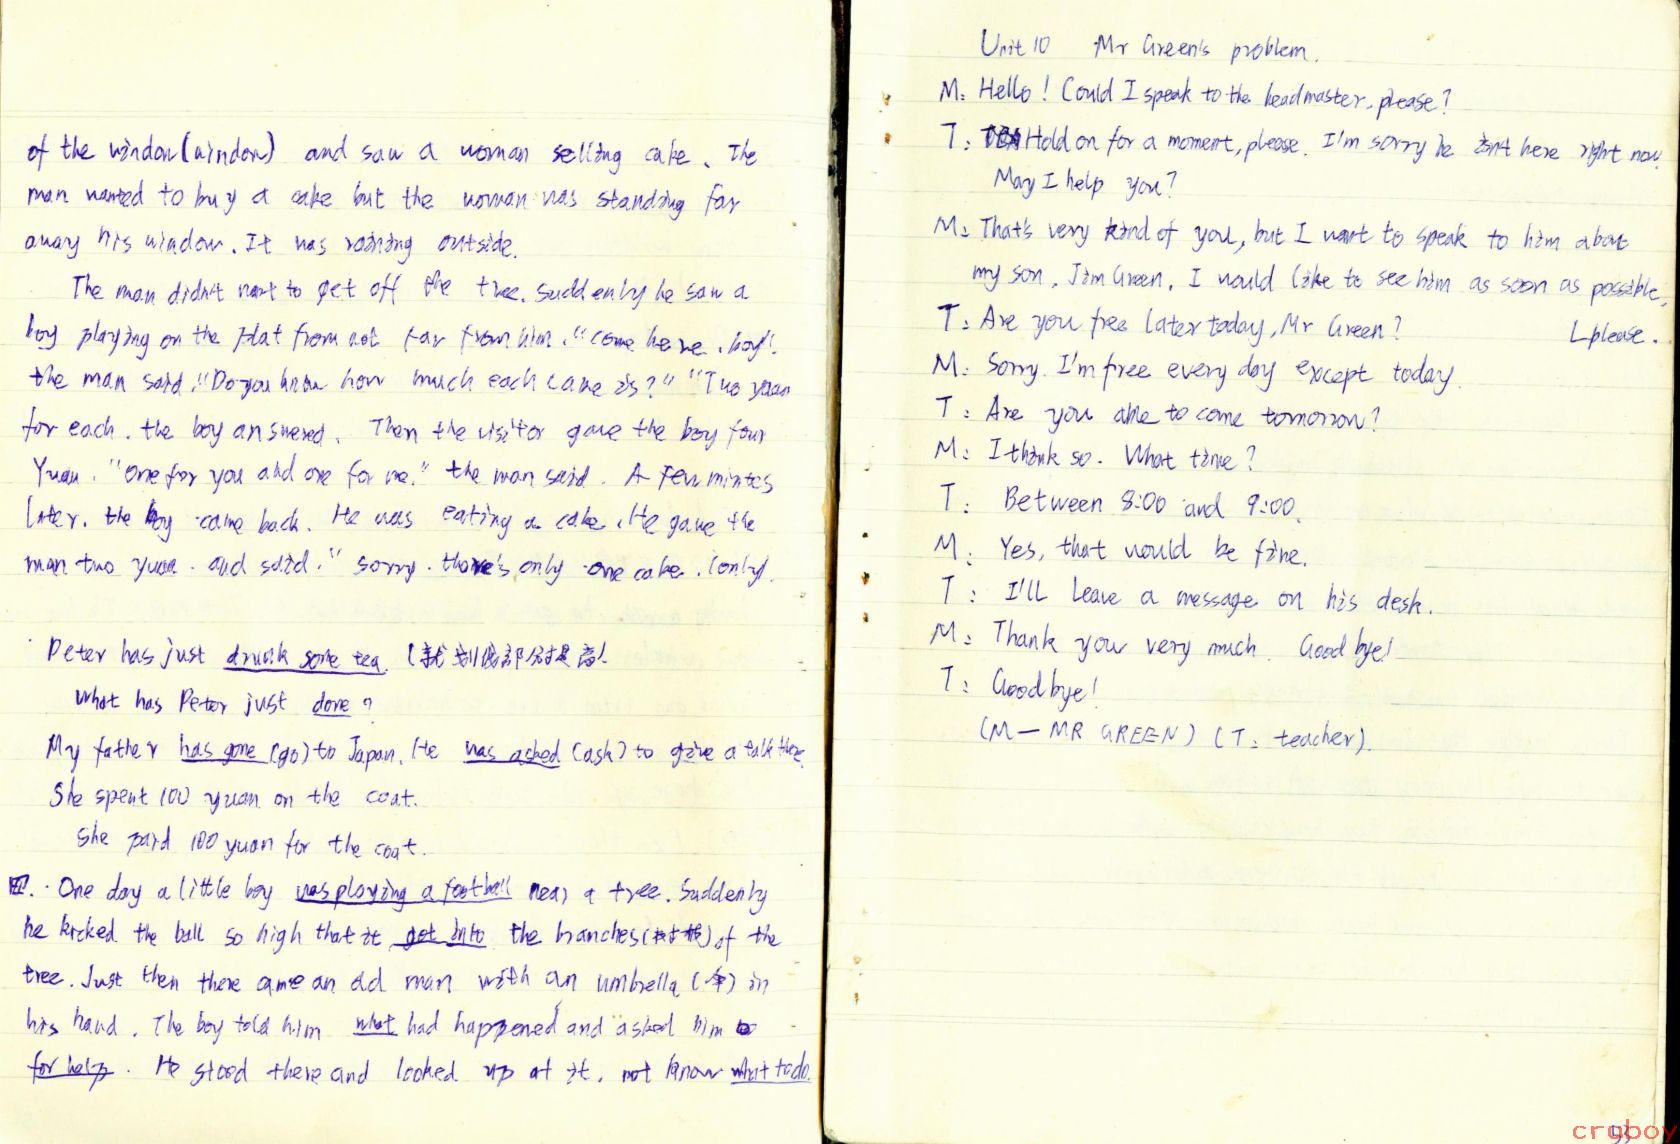 of the window(window) and saw a woman selling cake. The
man wanted to buy a cake but the woman was standing far
away his window. It was raining outside.
The man didn't want to get off the tree. Suddenly he saw a
boy playing on the plat from not far from him. "come here, boy".
the man said. "Do you know how much each cake is?" "Two yuan
for each. the boy answered. Then the visitor gave the boy four
Yuan. "One for you and one for me." the man said. A few mintes
later. the boy came back. He was eating a cake. He gave the
man two yuan. and said. "sorry. there's only one cake. (only).
Peter has just drunk some tea. (就划线部分提问)
What has Peter just done?
My father has gone (go) to Japan. He was asked (ask) to give a talk there.
She spent 100 yuan on the coat.
She paid 100 yuan for the coat.
四. One day a little boy was playing a football near a tree. Suddenly
he kicked the ball so high that it got into the branches(树枝) of the
tree. Just then there came an old man with an umbrella (伞) in
his hand. The boy told him what had happened and asked him
for help. He stood there and looked up at it, not know what to do.
Unit 10 Mr Green's problem.
M: Hello! Could I speak to the headmaster, please?
T: Hold on for a moment, please. I'm sorry he isn't here right now.
May I help you?
M: That's very kind of you, but I want to speak to him about
my son, Jim Green. I would like to see him as soon as possible,
please.
T: Are you free later today, Mr Green?
M: Sorry. I'm free every day except today.
T: Are you able to come tomorrow?
M: I think so. What time?
T: Between 8:00 and 9:00.
M: Yes, that would be fine.
T: I'll leave a message on his desk.
M: Thank your very much. Goodbye!
T: Goodbye!
(M — MR GREEN) (T: teacher).
cruboy